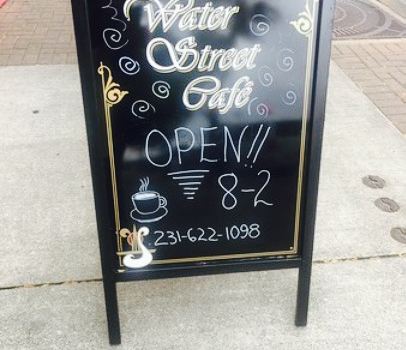 Water
Street
Café
OPEN!!
8-2
231-622-1098